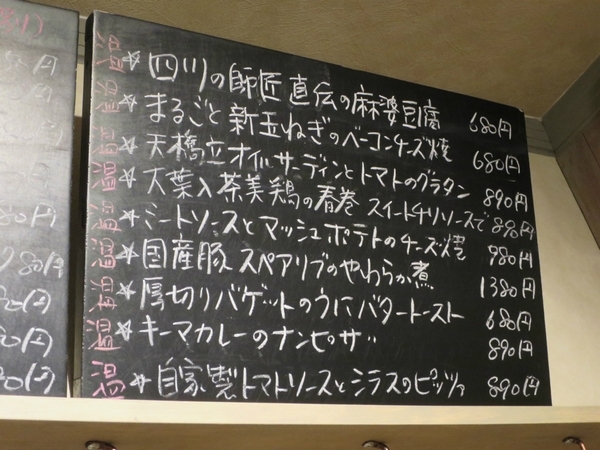 温 ☆ 四川の師匠直伝の麻婆豆腐 680円
温 ☆ まるごと新玉ねぎのベーコンチーズ焼 680円
温 ☆ 天橋立オイルサーディンとトマトのグラタン 890円
温 ☆ 大葉入茶美鶏の春巻 スイートチリソースで 890円
温 ☆ ミートソースとマッシュポテトのチーズ焼 980円
温 ☆ 国産豚スペアリブのやわらか煮 1380円
温 ☆ 厚切りバゲットのうにバタートースト 680円
温 ☆ キーマカレーのナンピザ 890円
温 ☆ 自家製トマトソースとシラスのピッツァ 890円